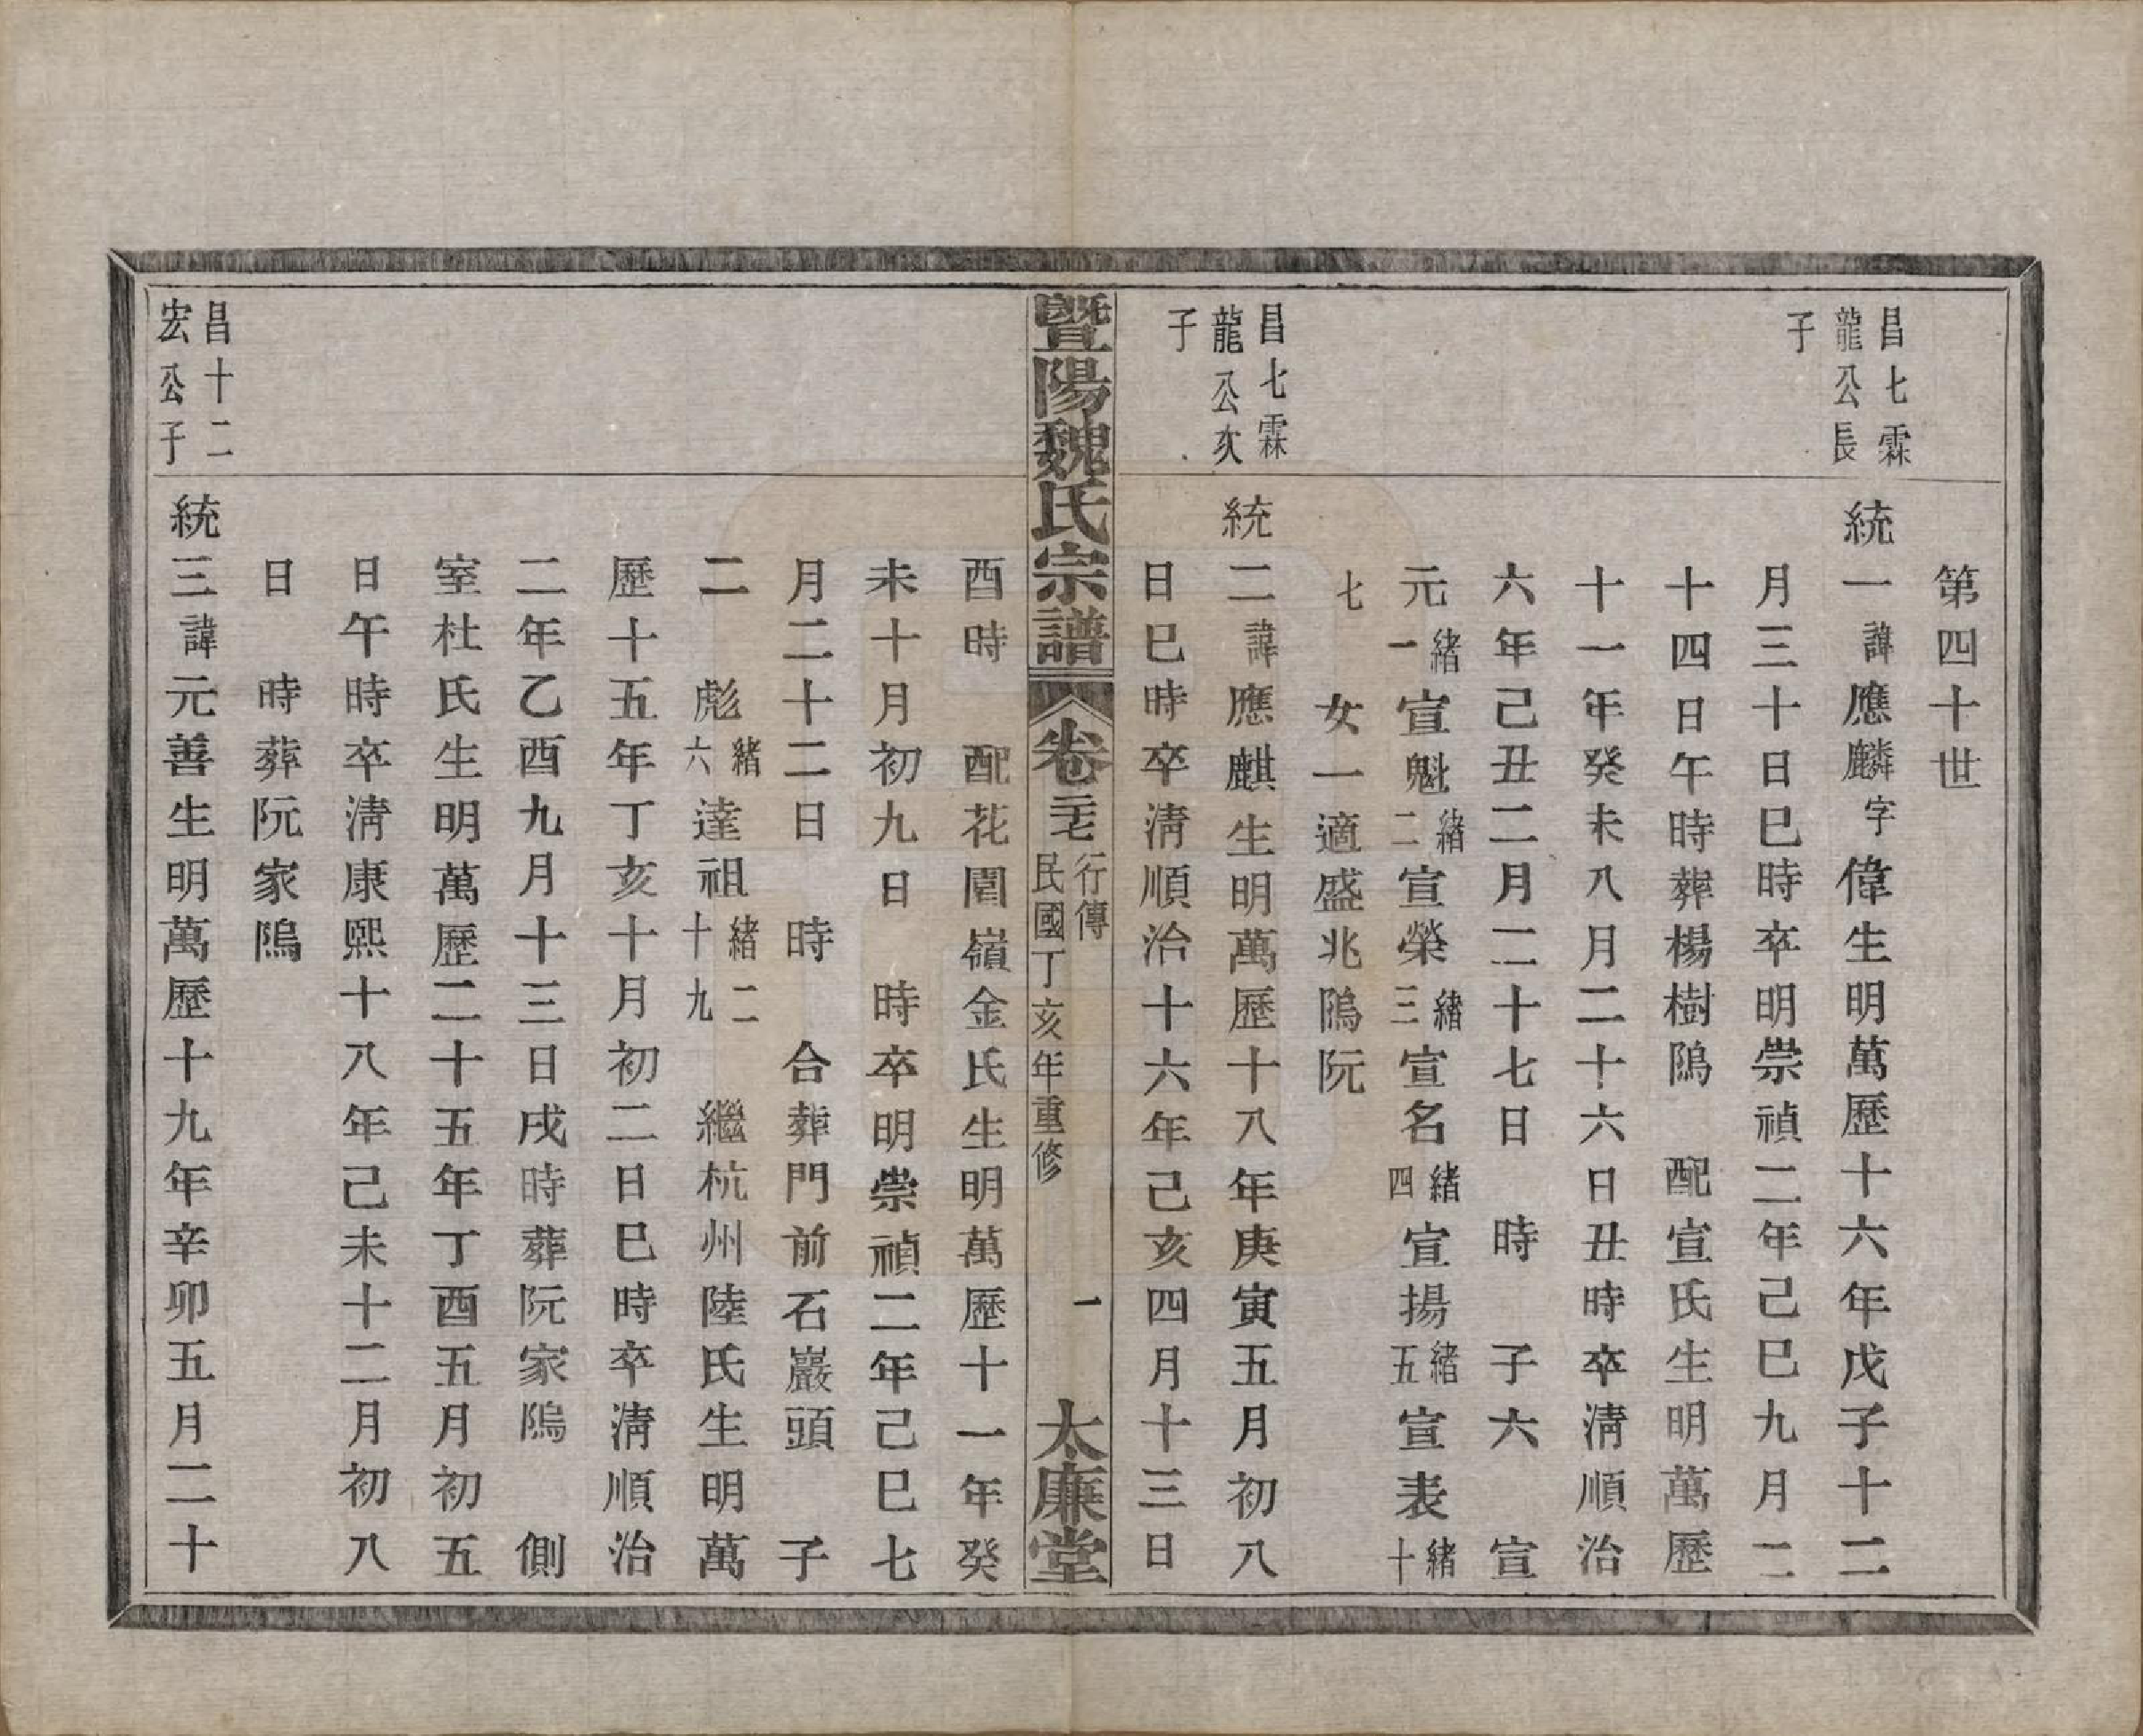 第四十世
昌七霖
龍公長
子
統一諱應麟字偉生明萬歷十六年戊子十二
月三十日巳時卒明崇禎二年己巳九月二
十四日午時葬楊樹隖　配宣氏生明萬歷
十一年癸未八月二十六日丑時卒清順治
六年己丑二月二十七日　時　子六　宣
元緒一宣魁緒二宣榮緒三宣名緒四宣揚緒五宣表緒十
七　女一適盛兆隖阮
昌七霖
龍公次
子
統二諱應麒生明萬歷十八年庚寅五月初八
日巳時卒清順治十六年己亥四月十三日
暨陽魏氏宗譜　卷二七　行傳　民國丁亥年重修　一　太廉堂
酉時　配花園嶺金氏生明萬歷十一年癸
未十月初九日　時卒明崇禎二年己巳七
月二十二日　時　合葬門前石巖頭　子
二　彪緒六達祖緒二十九　繼杭州陸氏生明萬
歷十五年丁亥十月初二日巳時卒清順治
二年乙酉九月十三日戌時葬阮家隖　側
室杜氏生明萬歷二十五年丁酉五月初五
日午時卒清康熙十八年己未十二月初八
日　時葬阮家隖
昌十二
宏公子
統三諱元善生明萬歷十九年辛卯五月二十